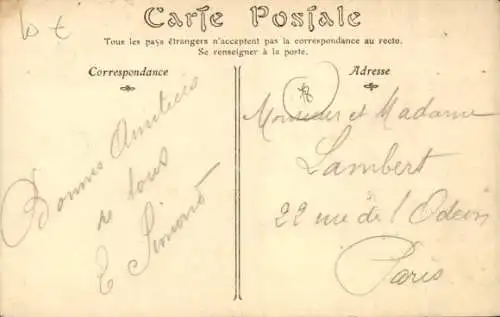 Carte Postale
Tous les pays étrangers n'acceptent pas la correspondance au recto.
Se renseigner à la poste.
Correspondance
Bonnes Amitiés
de tous
E Simond
Adresse
Monsieur et Madame
Lambert
22 rue de l'Odéon
Paris